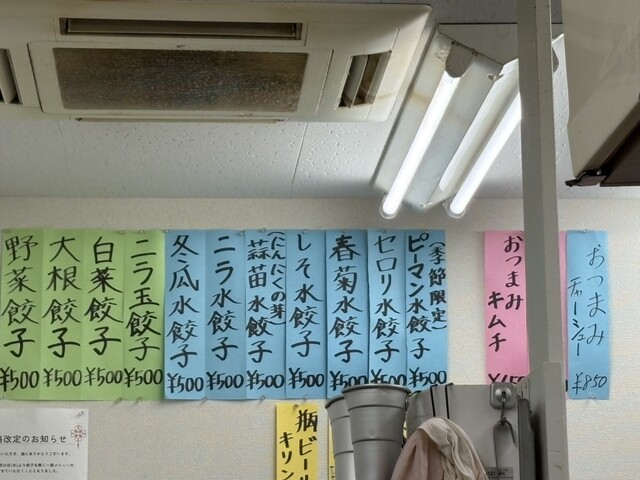 野菜餃子
¥500
大根餃子
¥500
白菜餃子
¥500
ニラ玉餃子
¥500
冬瓜水餃子
¥500
ニラ水餃子
¥500
(にんにくの芽)
蒜苗水餃子
¥500
しそ水餃子
¥500
春菊水餃子
¥500
セロリ水餃子
¥500
(季節限定)
ピーマン水餃子
¥500
おつまみ
キムチ
おつまみ
チャーシュー
¥850
改定のお知らせ
瓶ビール
キリン